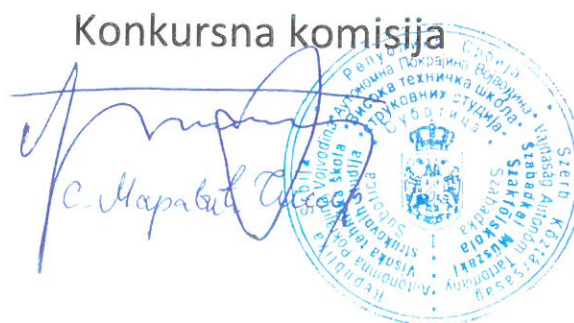 Konkursna komisija
С. Маравић
Република Србија
Аутономна Покрајина Војводина
Висока техничка школа
струковних студија
Суботица
Republika Srbija
Autonomna pokrajina Vojvodina
Visoka tehnička škola
strukovnih studija
Subotica
Szerb Köztársaság
Vajdaság Autonóm Tartomány
Szabadkai Műszaki
Szakfőiskola
Szabadka
I